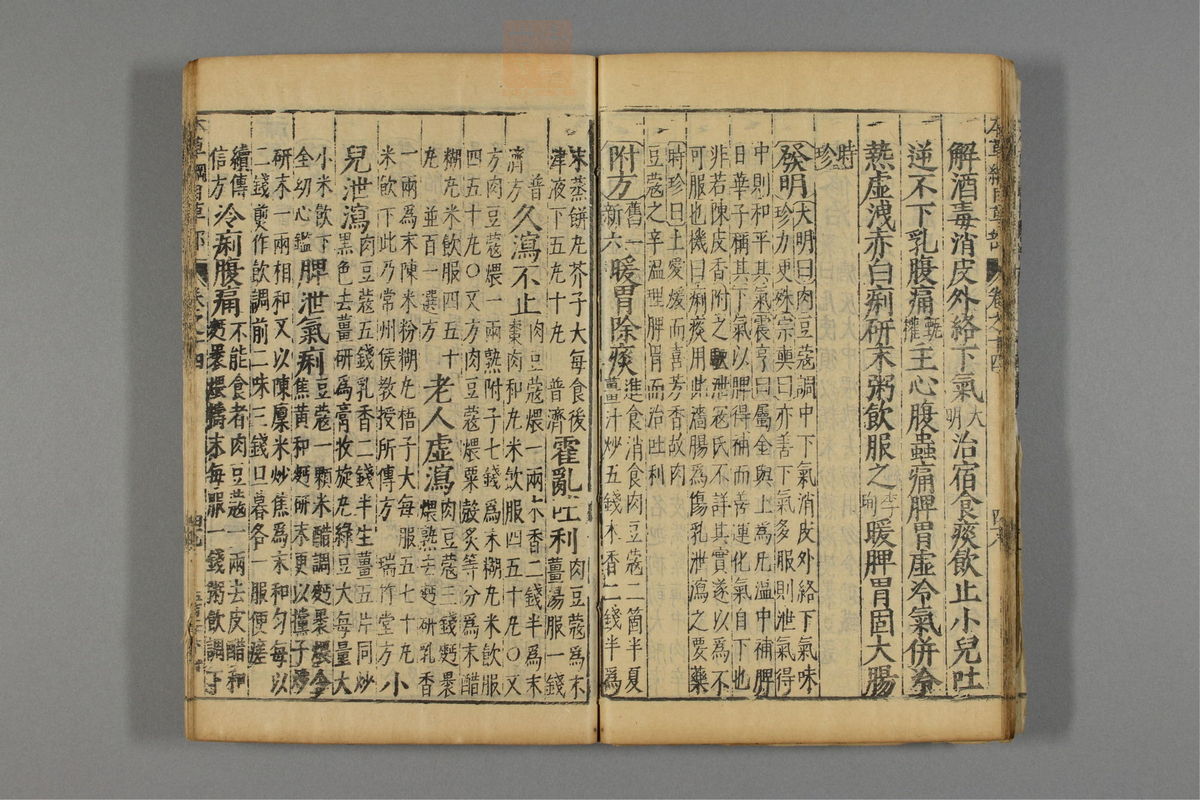 解酒毒消皮外絡下氣大明治宿食痰飲止小兒吐
逆不下乳腹痛甄權主心腹蟲痛脾胃虛冷氣併冷
熱虛洩赤白痢研末粥飲服之李珣暖脾胃固大腸
時珍
發明大明曰肉豆蔻調中下氣消皮外絡下氣味
珍力更殊宗奭曰亦善下氣多服則泄氣得
中則和平其氣震亨曰屬金與土為丸溫中補脾
日華子稱其下氣以脾得補而善運化氣自下也
非若陳皮香附之駃泄寇氏不詳其實遂以為不
可服也機曰痢疾用此濇腸為傷乳泄瀉之要藥
時珍曰土愛煖而喜芳香故肉
豆蔻之辛溫理脾胃而治吐利
附方舊一新六暖胃除痰進食消食肉豆蔻二箇半夏
薑汁炒五錢木香二錢半為
末蒸餅丸芥子大每食後
津液下五丸十丸 普濟霍亂吐利肉豆蔻為末
薑湯服一錢
普濟方久瀉不止肉豆蔻煨一兩木香二錢半為末
棗肉和丸米飲服四五十丸〇又
方肉豆蔻煨一兩熟附子七錢為末糊丸米飲服
四五十丸〇又方肉豆蔻煨粟殼炙等分為末醋
糊丸米飲服四五
丸 並百一選方老人虛瀉肉豆蔻三錢麪裹
煨熟去麪研乳香
一兩為末陳米粉糊丸梧子大每服五七十丸
米飲下此乃常州侯教授所傳方 瑞竹堂方小
兒泄瀉肉豆蔻五錢乳香二錢半生薑五片同炒
黑色去薑研為膏收旋丸綠豆大每量大
小米飲下
全幼心鑑脾泄氣痢豆蔻一顆米醋調麪裹煨令
焦黃和麪研末更以欓子炒
研末一兩相和又以陳廩米炒焦為末和勻每以
二錢煎作飲調前二味三錢旦暮各一服便瘥
續傳
信方冷痢腹痛不能食者肉豆蔻一兩去皮醋和
麪裹煨擣末每服一錢粥飲調下